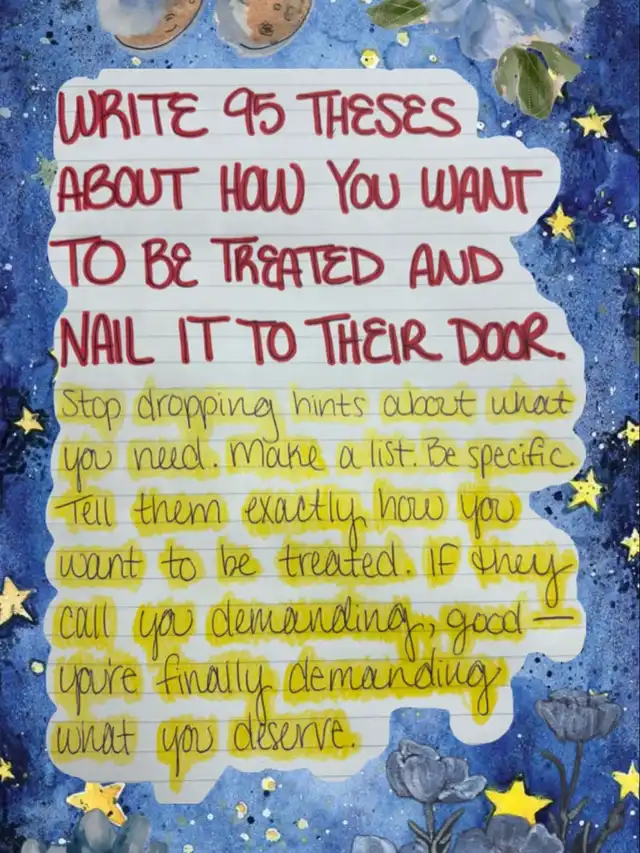 WRITE 95 THESES
ABOUT HOW YOU WANT
TO BE TREATED AND
NAIL IT TO THEIR DOOR.
Stop dropping hints about what
you need. Make a list. Be specific.
Tell them exactly how you
want to be treated. If they
call you demanding, good—
you're finally demanding
what you deserve.